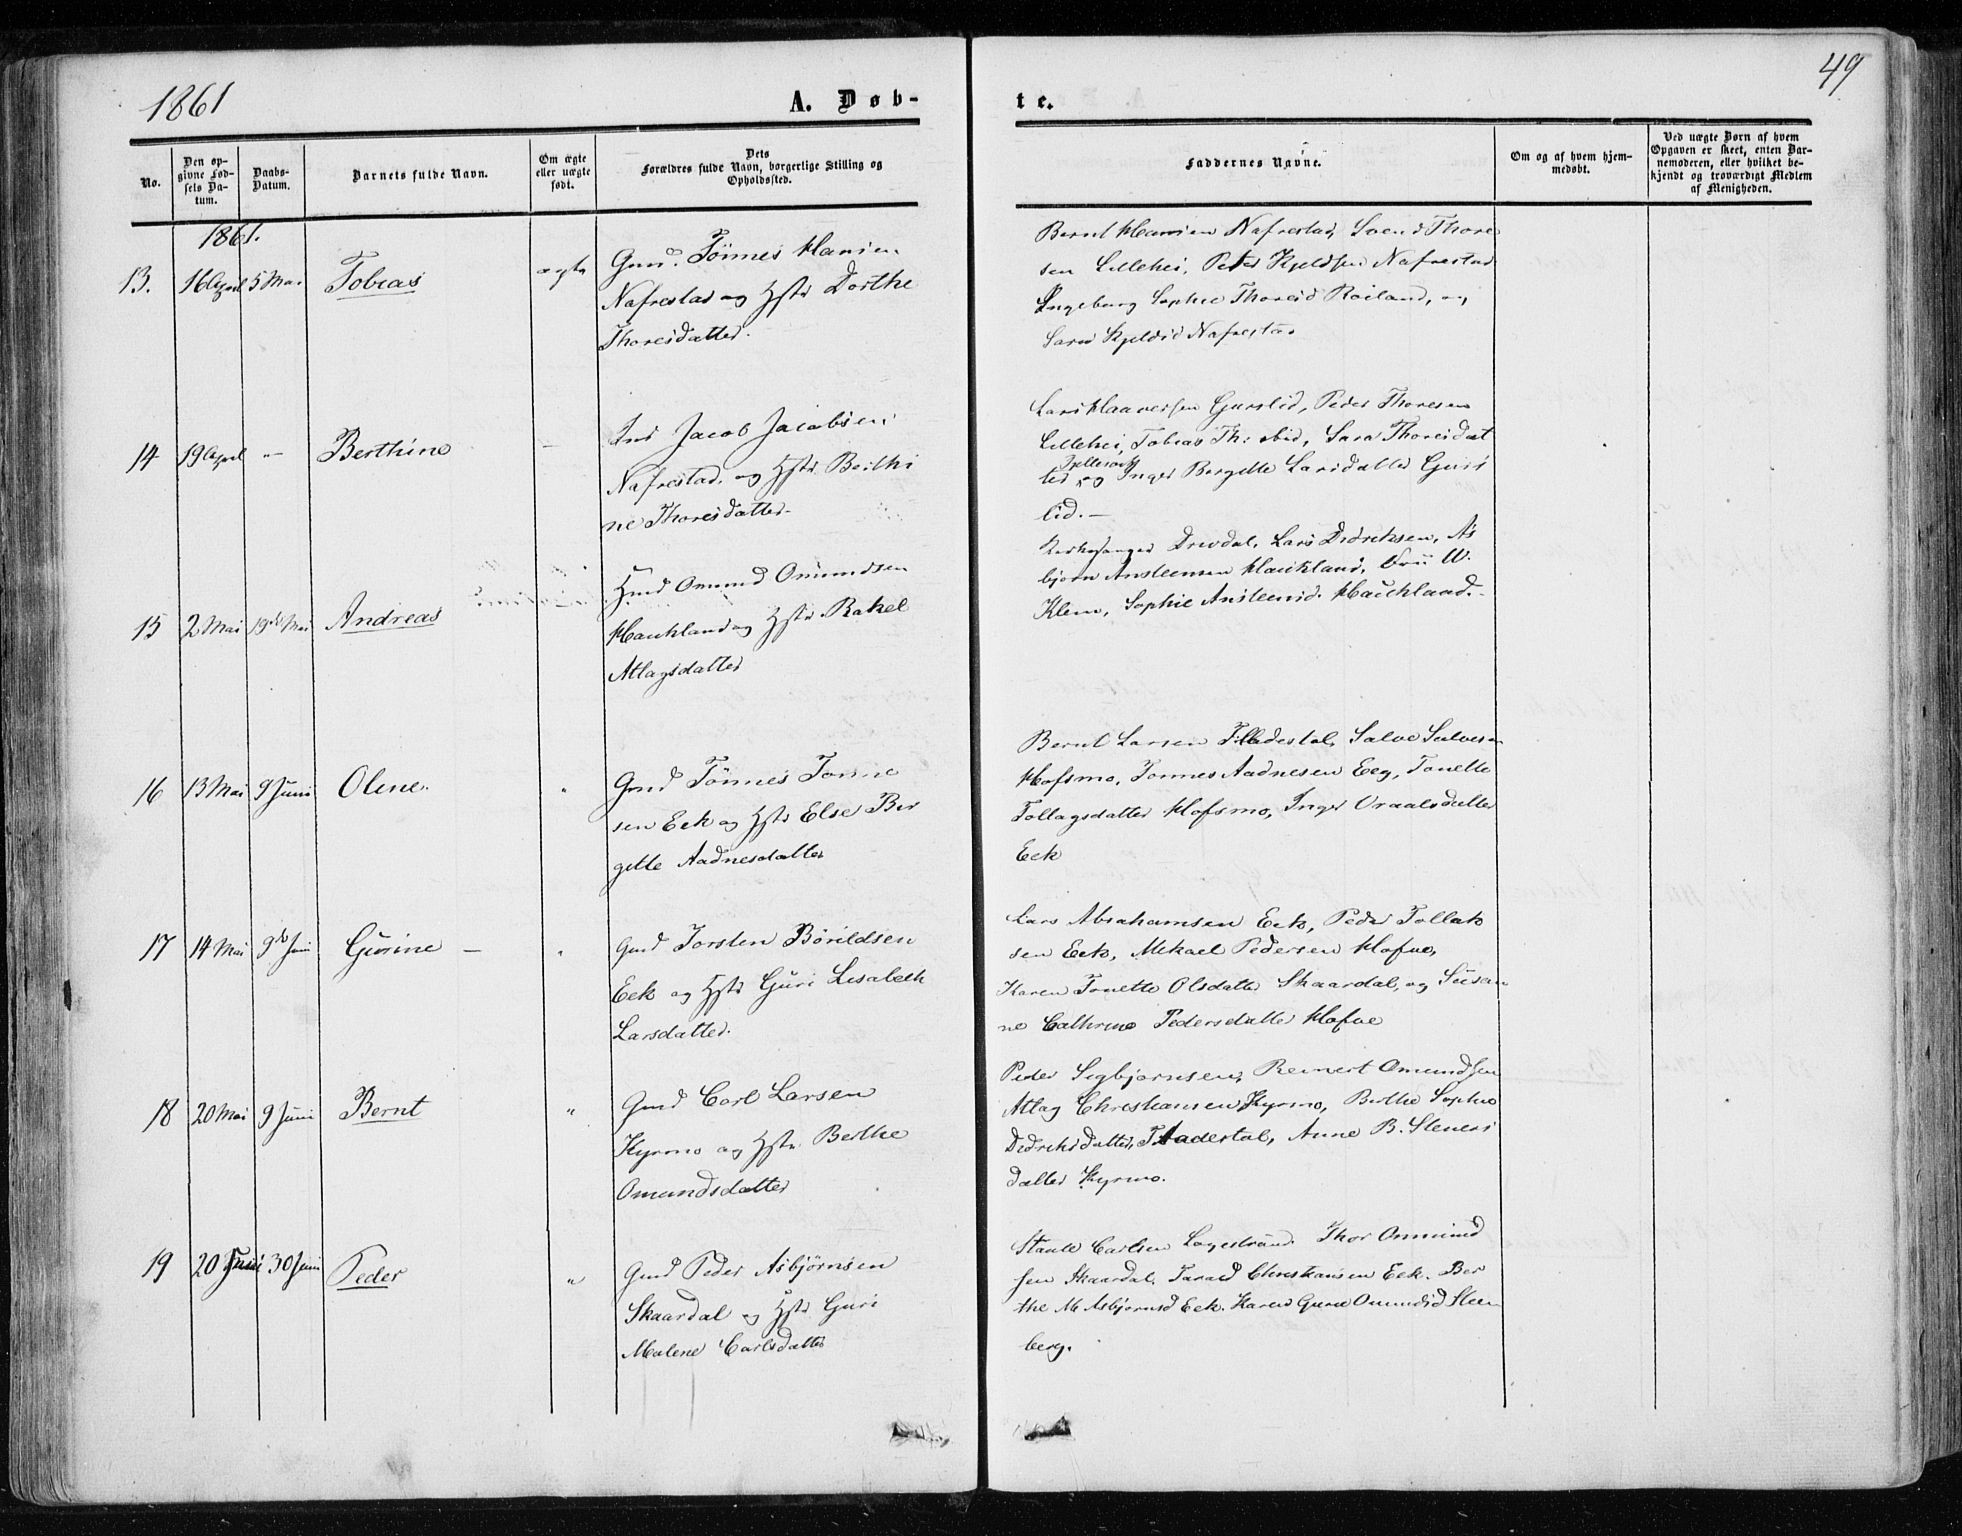 1861
A. Døb-
te.
49
No.
Den op-
givne Fød-
sels Da-
tum.
Daabs-
Datum.
Barnets fulde Navn.
Om ægte
eller uægte
født.
Dets
Forældres fulde Navn, borgerlige Stilling og
Opholdssted.
Faddernes Navne.
Om og af hvem hjem-
medøbt.
Ved uægte Børn af hvem
Opgaven er skeet, enten Bar-
nemoderen, eller hvilket be-
kjendt og troværdigt Medlem
af Menigheden.
1861.
13. 16 April 5 Mai Tobias ægte
Gmd. Tönnes Hansen
Nafrestad og Hstr Dorthe
Thoresdatter.
Bernt Hansen Nafrestad, Svend Thore
sen Lillehei, Peter Kjeldsen Nafrestad
Ingeborg Sophie Thoresd Roiland, og
Sara Kjeldsd Nafrestad
14 19 April -"- Berthine -
Ind Jacob Jacobsen
Nafrestad, og Hstr Berthi
ne Thoresdatter.
Lars Haaversen Gurslid, Peder Thoresen
Lillehei, Tobias Th: ibid, Sara Thoresdat
ter og Inger Bergitte Larsdatter Gurs
lid.-
15 2 Mai 19de Mai Andreas
Hmd Omund Omundsen
Hauchland og Hstr Rakel
Atlagsdatter
Kirkesanger Drevdal, Lars Didriksen, As
bjørn Ansteensen Hauchland, Frii W.
Klem, Sophie Ansteensd. Hauchland.-
16 13 Mai 9 Juni Oline. "
Gmd Tönnes Tønne
sen Eek og Hstr Else Ber
gitte Aadnesdatter
Bernt Larsen Salve Salvesen
Hofsmo, Tonnes Aadnesen Eeg, Tonette
Tollagsdatter Hofsmo, Inger Oraalsdatter
Eek
17 14 Mai 9de Juni Gurine - "
Gmd Torsten Börildsen
Eek og Hstr Guri Lisabeth
Larsdatter.
Lars Abrahamsen Eek, Peder Tollak
sen Eek, Mikael Pedersen Hofve,
Karen Tonette Olsdatter Skaardal, og Susan
ne Cathrine Pedersdatter Hofve
18 20 Mai 9 Juni Bernt "
Gmd Carl Larsen
Kyrmo og Hstr Berthe
Omundsdatter
Peder Sigbjørnsen, Reinert Omundsen
Atlag Christiansen Kyrmo, Berthe Sophie
Didriksdatter, Anne B. Steners
datter Kyrmo.
19 20 Juni 30 Juni Peder "
Gmd Peder Asbjørnsen
Skaardal og Hstr Guri
Malene Carlsdatter
Staale Carlsen Logestrand. Thor Ommund
sen Skaardal. Tarald Christiansen Eek. Ber
the M Asbjørnsd Eek. Karen Gurie Omundsd Steen
berg.